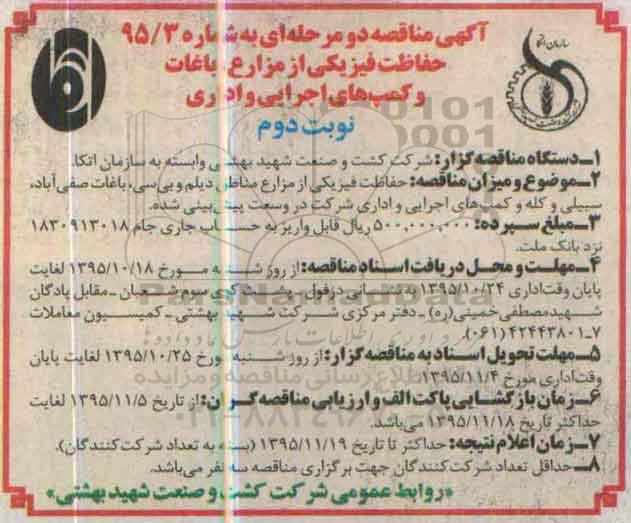 آگهی مناقصه دو مرحله‌ای به شماره ۹۵/۳
حفاظت فیزیکی از مزارع، باغات
و کمپ‌های اجرایی و اداری
نوبت دوم
سازمان اتکا
۱ـ دستگاه مناقصه گزار: شرکت کشت و صنعت شهید بهشتی وابسته به سازمان اتکا.
۲ـ موضوع و میزان مناقصه: حفاظت فیزیکی از مزارع مناطق دیلم و بی‌سی، باغات صفی‌آباد،
سبیلی و کله و کمپ‌های اجرایی و اداری شرکت در وسعت پیش‌بینی شده.
۳ـ مبلغ سپرده: ۵۰۰,۰۰۰,۰۰۰ ریال قابل واریز به حساب جاری جام ۱۸۳۰۹۱۳۰۱۸
نزد بانک ملت.
۴ـ مهلت و محل دریافت اسناد مناقصه: از روز شنبه مورخ ۱۳۹۵/۱۰/۱۸ لغایت
پایان وقت اداری ۱۳۹۵/۱۰/۲۴ به نشانی دزفول ـ پشت کوی سوم شعبان ـ مقابل پادگان
شهید مصطفی خمینی(ره) ـ دفتر مرکزی شرکت شهید بهشتی ـ کمیسیون معاملات
۷ـ۴۲۴۴۳۸۰۱ (۰۶۱).
۵ـ مهلت تحویل اسناد به مناقصه گزار: از روز شنبه مورخ ۱۳۹۵/۱۰/۲۵ لغایت پایان
وقت اداری مورخ ۱۳۹۵/۱۱/۴.
۶ـ زمان بازگشایی پاکت الف و ارزیابی مناقصه گران: از تاریخ ۱۳۹۵/۱۱/۵ لغایت
حداکثر تاریخ ۱۳۹۵/۱۱/۱۸ می‌باشد.
۷ـ زمان اعلام نتیجه: حداکثر تا تاریخ ۱۳۹۵/۱۱/۱۹ (بسته به تعداد شرکت کنندگان).
۸ـ حداقل تعداد شرکت کنندگان جهت برگزاری مناقصه سه نفر می‌باشد.
«روابط عمومی شرکت کشت و صنعت شهید بهشتی»
ParsNamadData